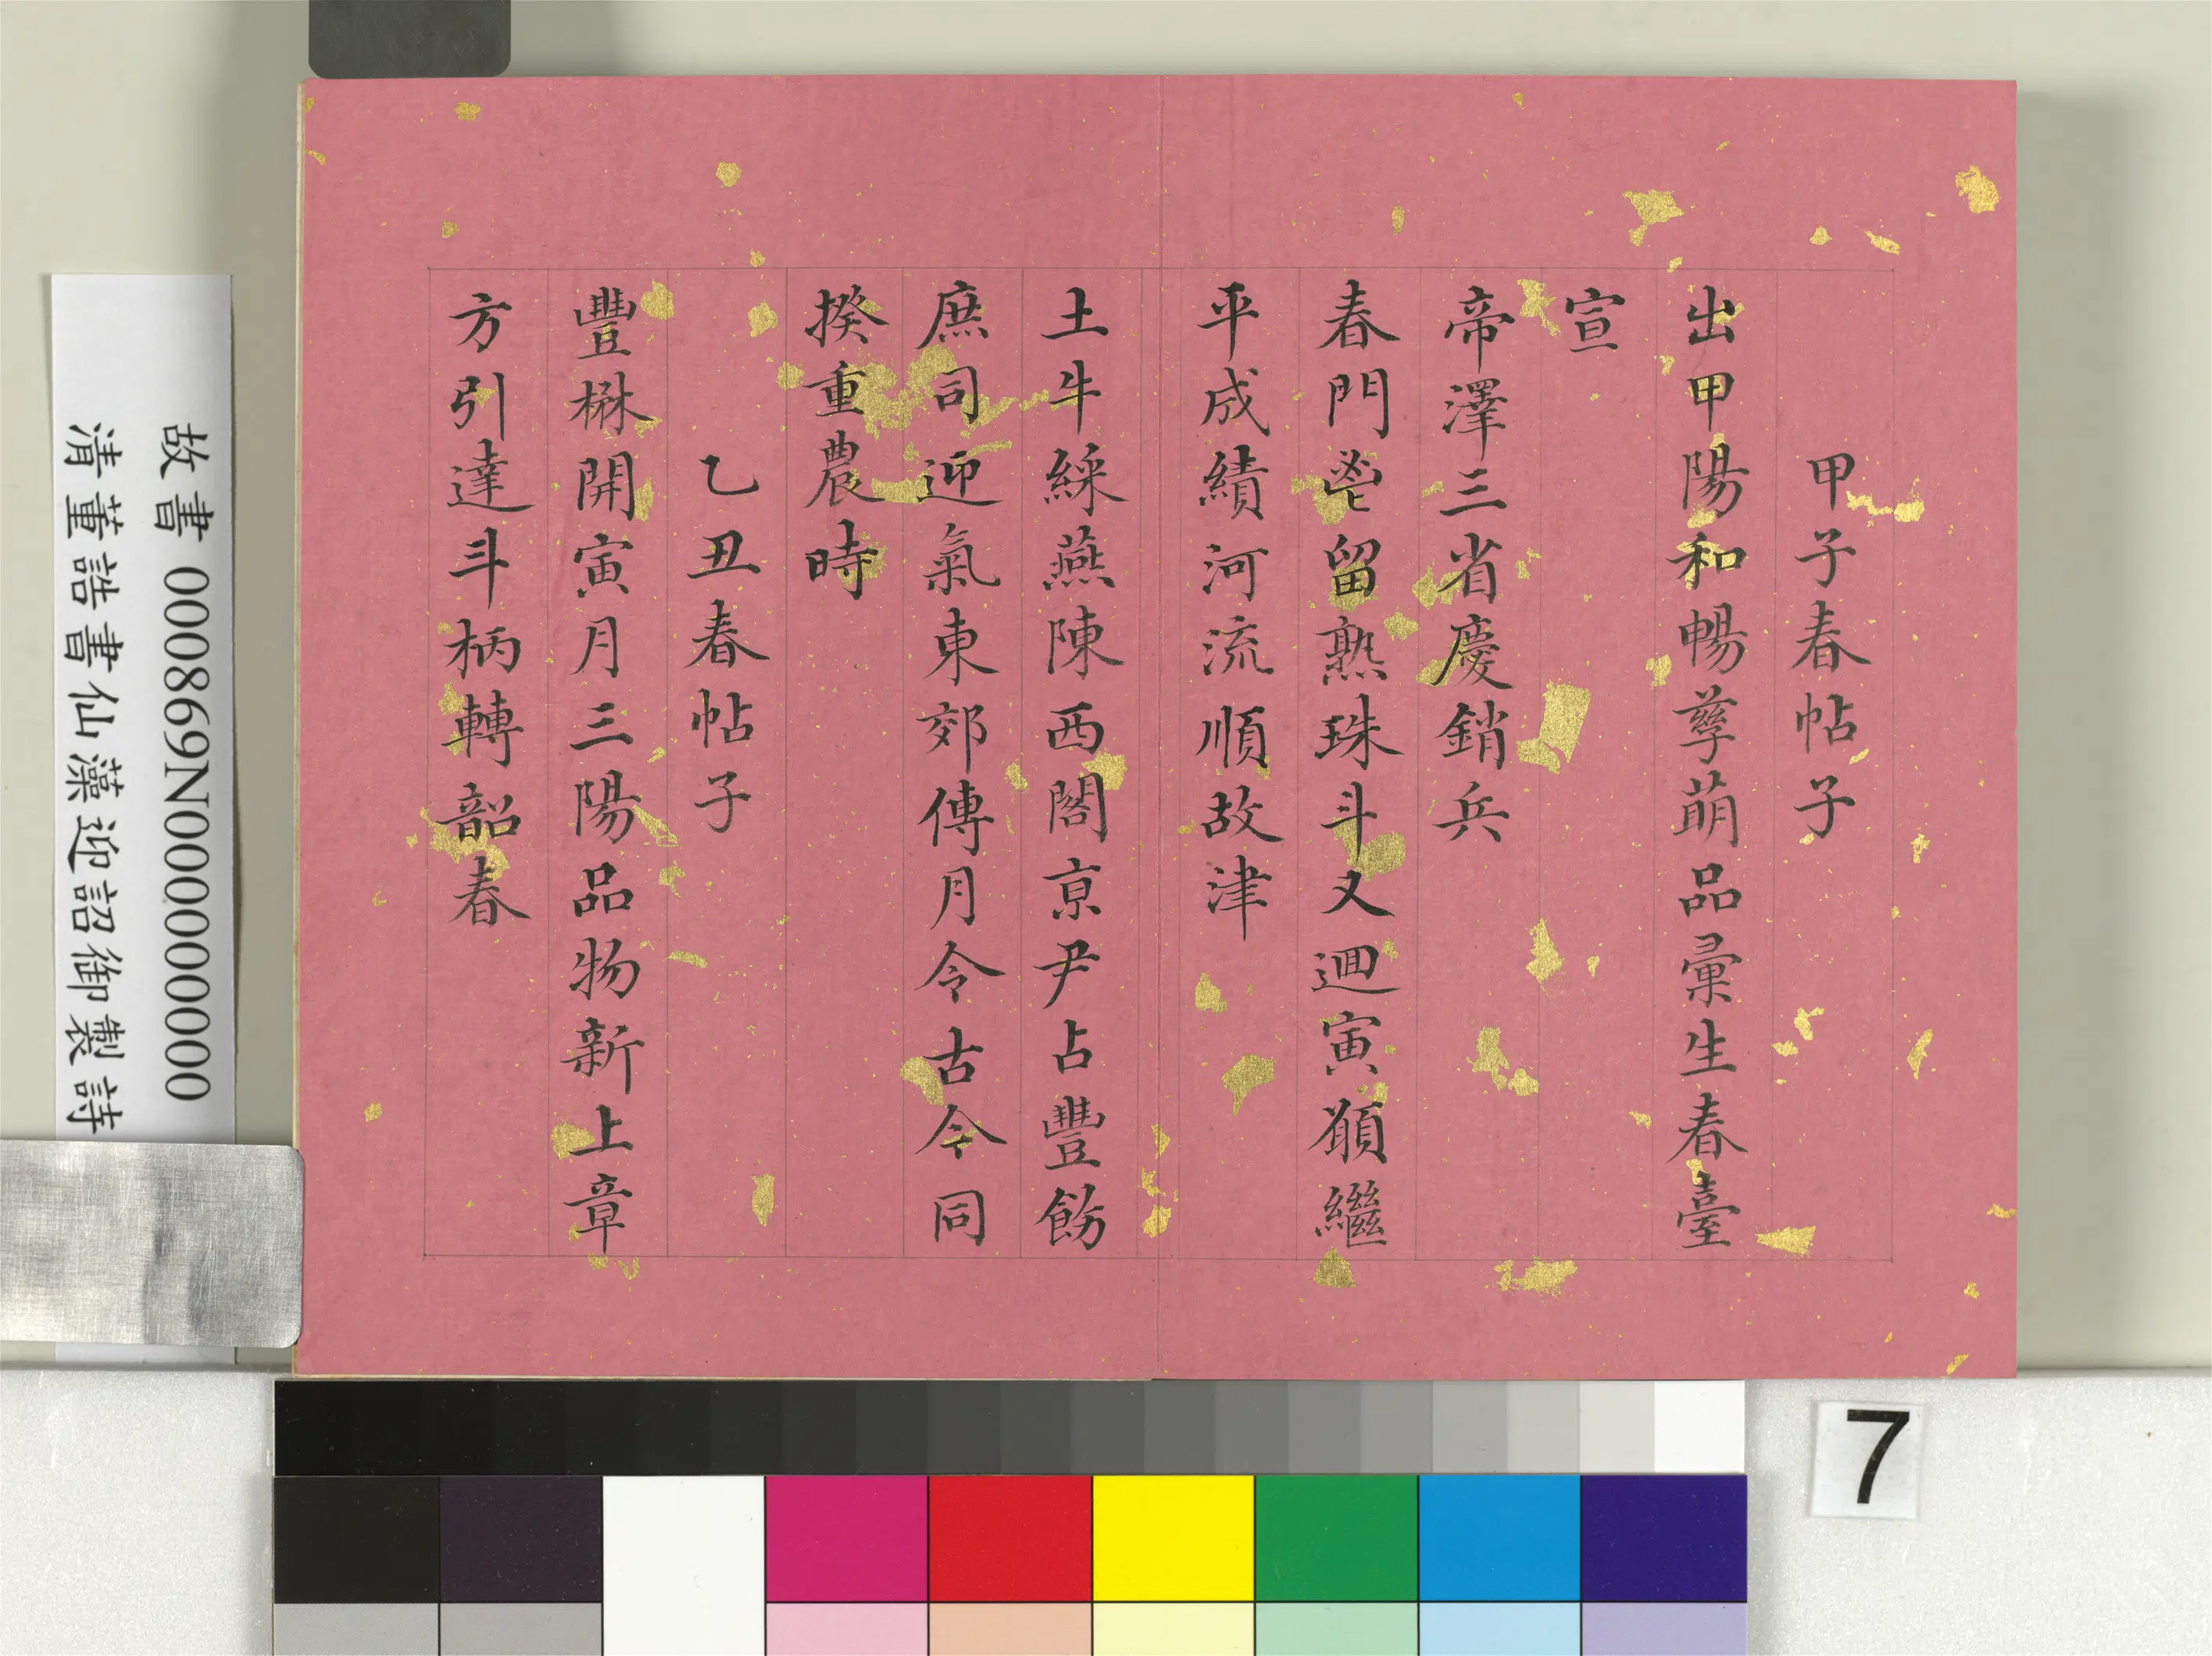 甲子春帖子
出甲陽和暢孳萌品彚生春臺
宣
帝澤三省慶銷兵
春門鬯留熟珠斗又迴寅願繼
平成績河流順故津
土牛綵燕陳西閣亰尹占豐飭
庶司迎氣東郊傳月令古今同
揆重農時
乙丑春帖子
豐楙開寅月三陽品物新上章
方引達斗柄轉韶春
故書 000869N000000000
清董誥書仙藻迎詔御製詩
7